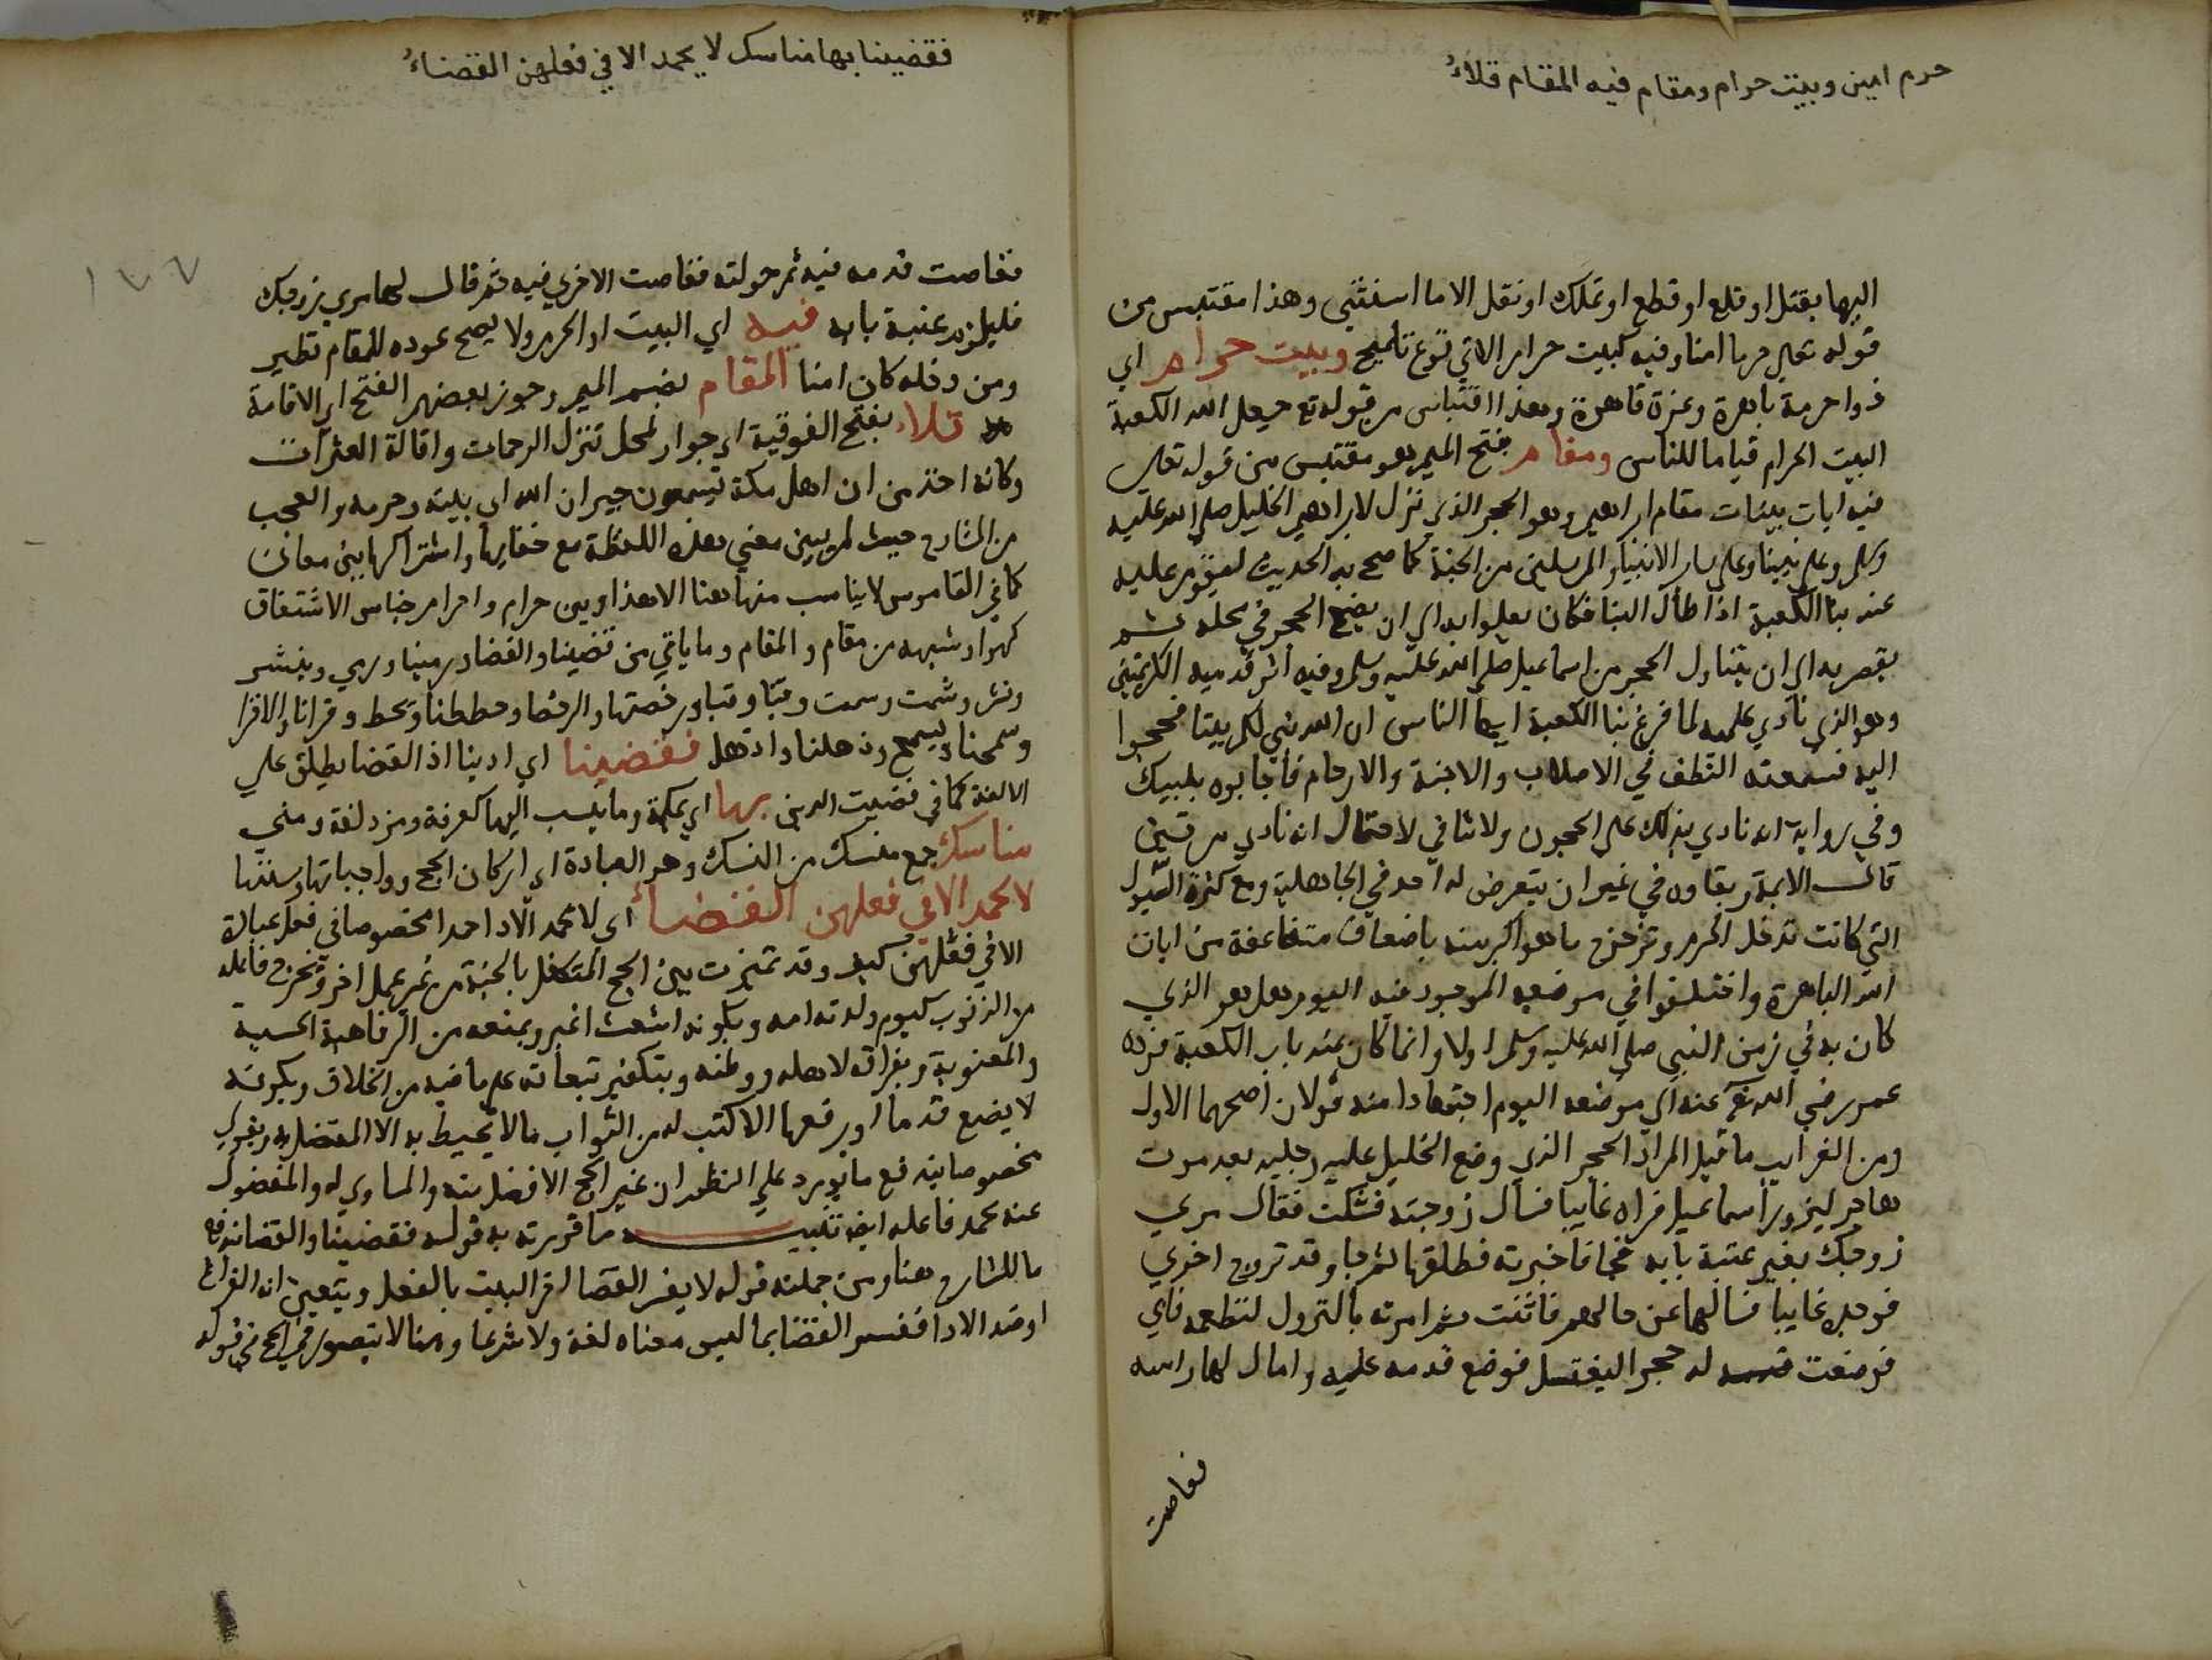 حرم امين وبيت حرام ومقام فيه المقام تلاءُ
اليها بقتل او قلع او قطع او تملك او نقل الا ما استثني وهذا مقتبس من
قوله تعالى حرما امنا وفيه كبيت حرام الاتي نوع تلميح وبيت حرام اي
ذو حرمة باهرة وعزة قاهرة وهذا اقتباس من قوله تع جعل الله الكعبة
البيت الحرام قياما للناس ومقام بفتح الميم وهو مقتبس من قوله تعالى
فيه ايات بينات مقام ابراهيم وهو الحجر الذي نزل لابراهيم الخليل صلى الله عليه
وسلم وعلى نبينا وعلى ساير الانبياء والمرسلين من الجنة كما صح به الحديث ليقوم عليه
عند بنا الكعبة اذا طال البنا فكان يعلوا به الى ان يضع الحجر في محله ثم
يقصر به الى ان يتناول الحجر من اسماعيل صلى الله عليه وسلم وفيه اثر قدميه الكريمتين
وهو الذي نادي عليه لما فرغ بنا الكعبة ايها الناس ان الله بني لكم بيتا فحجوا
اليه فسمعته النطف في الاصلاب والاجنة والارحام فاجابوه بلبيك
وفي رواية انه نادي بذلك على الحجون ولا تنافي لاحتمال انه نادي مرتين
قال الايمة وبقاوه في غير ان يتعرض له احد في الجاهلية ومع كثرة السيول
التي كانت تدخل الحرم وتزحزح ما هو اكبر منه باضعاف متضاعفة من ايات
الله الباهرة واختلفوا في موضعه الموجود فيه اليوم هل هو الذي
كان به في زمن النبي صلى الله عليه وسلم اولا وانما كان عند باب الكعبة فرده
عمر رضي الله تع عنه الى موضعه اليوم اجتهادا منه قولان اصحهما الاول
ومن الغرايب ما قيل المراد الحجر الذي وضع الخليل عليه رجليه بعد موت
هاجر ليزور اسماعيل فراه غايبا فسال زوجته فشكت فقال مري
زوجك يغير عتبة بابه فجا فاخبرته فطلقها ثم جا وقد تزوج اخري
فوجده غايبا فسالها عن حالهم فاثنت ثم امرته بالنزول لتطعمه فابي
فوضعت له حجرا ليغتسل فوضع قدمه عليه وامال لها راسه
فغاصت
فقضينا بها مناسك لا يحمد الا في فعلهن القضاءُ
١٧٧
فغاصت قدمه فيه ثم حولته فغاصت الاخري فيه ثم قال لها مري زوجك
فليلزم عتبة بابه فيه اي البيت او الحرم ولا يصح عوده للمقام نظير
ومن دخله كان امنا المقام بضم الميم وجوز بعضهم الفتح اي الاقامة
تلاء بفتح الفوقية اي جوار لمحل تنزل الرحمات واقالة العثرات
وكانه اخذ من ان اهل مكة يسمون جيران الله اي بيته وحرمه والعجب
من الشارح حيث لم يبين معني هذه اللفظة مع خفايها واشتراكها بين معان
كما في القاموس لا يناسب منها هنا الا هذا وبين حرام واحرام جناس الاشتقاق
كهو او شبهه من مقام والمقام وما ياتي من قضينا والقضا ورمينا ورمي وينشر
ونشر وشمت وسمت وقبا وقبا ورخصتها والرخصا وحططنا وتحط وقرانا والاقرا
وسمحنا ويسمح وذهلنا واذهل فقضينا اي ادينا اذ القضا يطلق على
الالغة كما في قضيت الدين بها اي بمكة وما ينسب اليها كعرفة ومزدلفة ومني
مناسك جمع منسك من النسك وهو العبادة اي اركان الحج وواجباتها وسننها
لا يحمد الا في فعلهن القضاءُ اي لا يحمد الادا حمدا مخصوصا في فعل عبادة
الا في فعلهن كيف وقد تميزت بين الحج المتكفل بالجنة من غير عمل اخر وبخروج فاعله
من الذنوب كيوم ولدته امه وبكونه اشعث اغبر ويمنعه من الرفاهية الحسية
والمعنوية وبفراقه لاهله ووطنه وبتكفير تبعاته على ما فيه من الخلاف وبكونه
لا يضع قدما او يرفعها الا كتب له من الثواب ما لا يحيط به الا المتفضل به وبقولي
مخصوصا فيه دفع ما يورد على النظم ان غير الحج الافضل منه والمساوي له والمفضول
عنه يحمد فاعله ايضا تنبيه ما قررته به قوله فقضينا والقضا اندفع
ما للشارح هنا ومن جملته قوله لا يفسر القضا اخر البيت بالفعل ويتعين انه الفراغ
او ضد الادا ففسر القضا بما ليس معناه لغة ولا شرعا وهنا لا يتصور في الحج في قوله